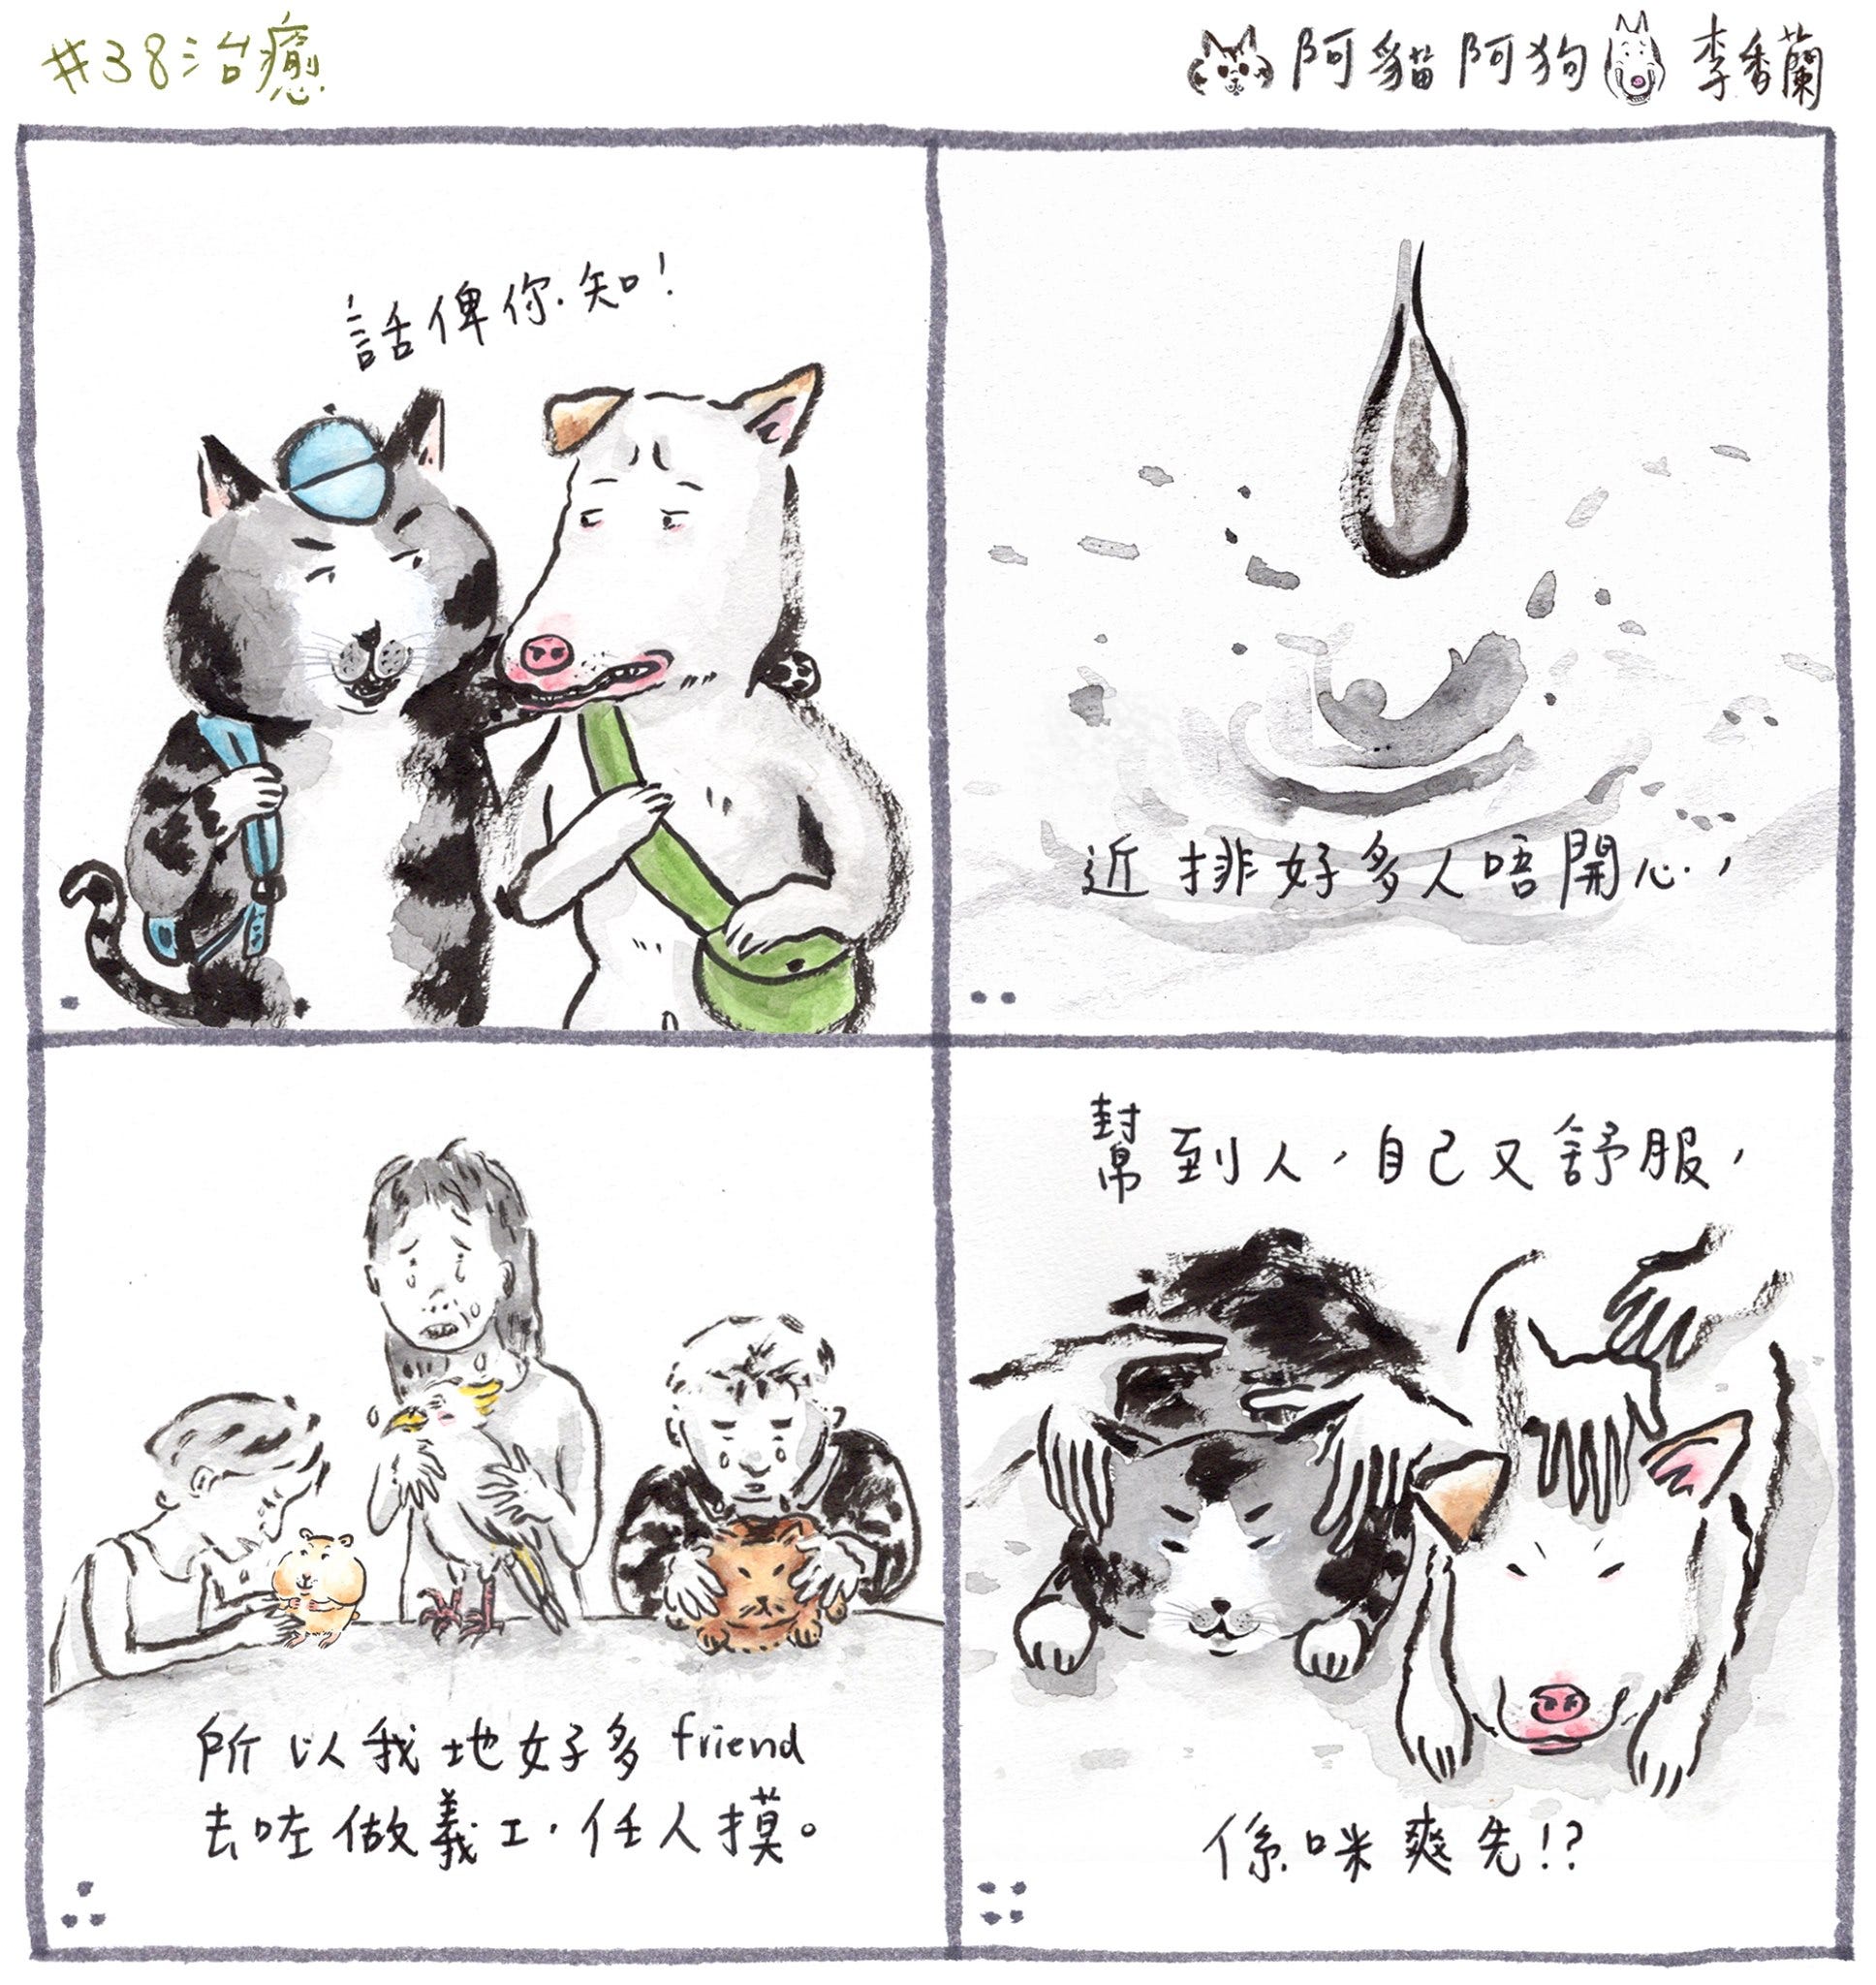 #38治癒
阿貓阿狗 李香蘭
話俾你知!
近排好多人唔開心,
所以我地好多friend
去咗做義工,任人摸。
幫到人,自己又舒服,
係咪爽先!?